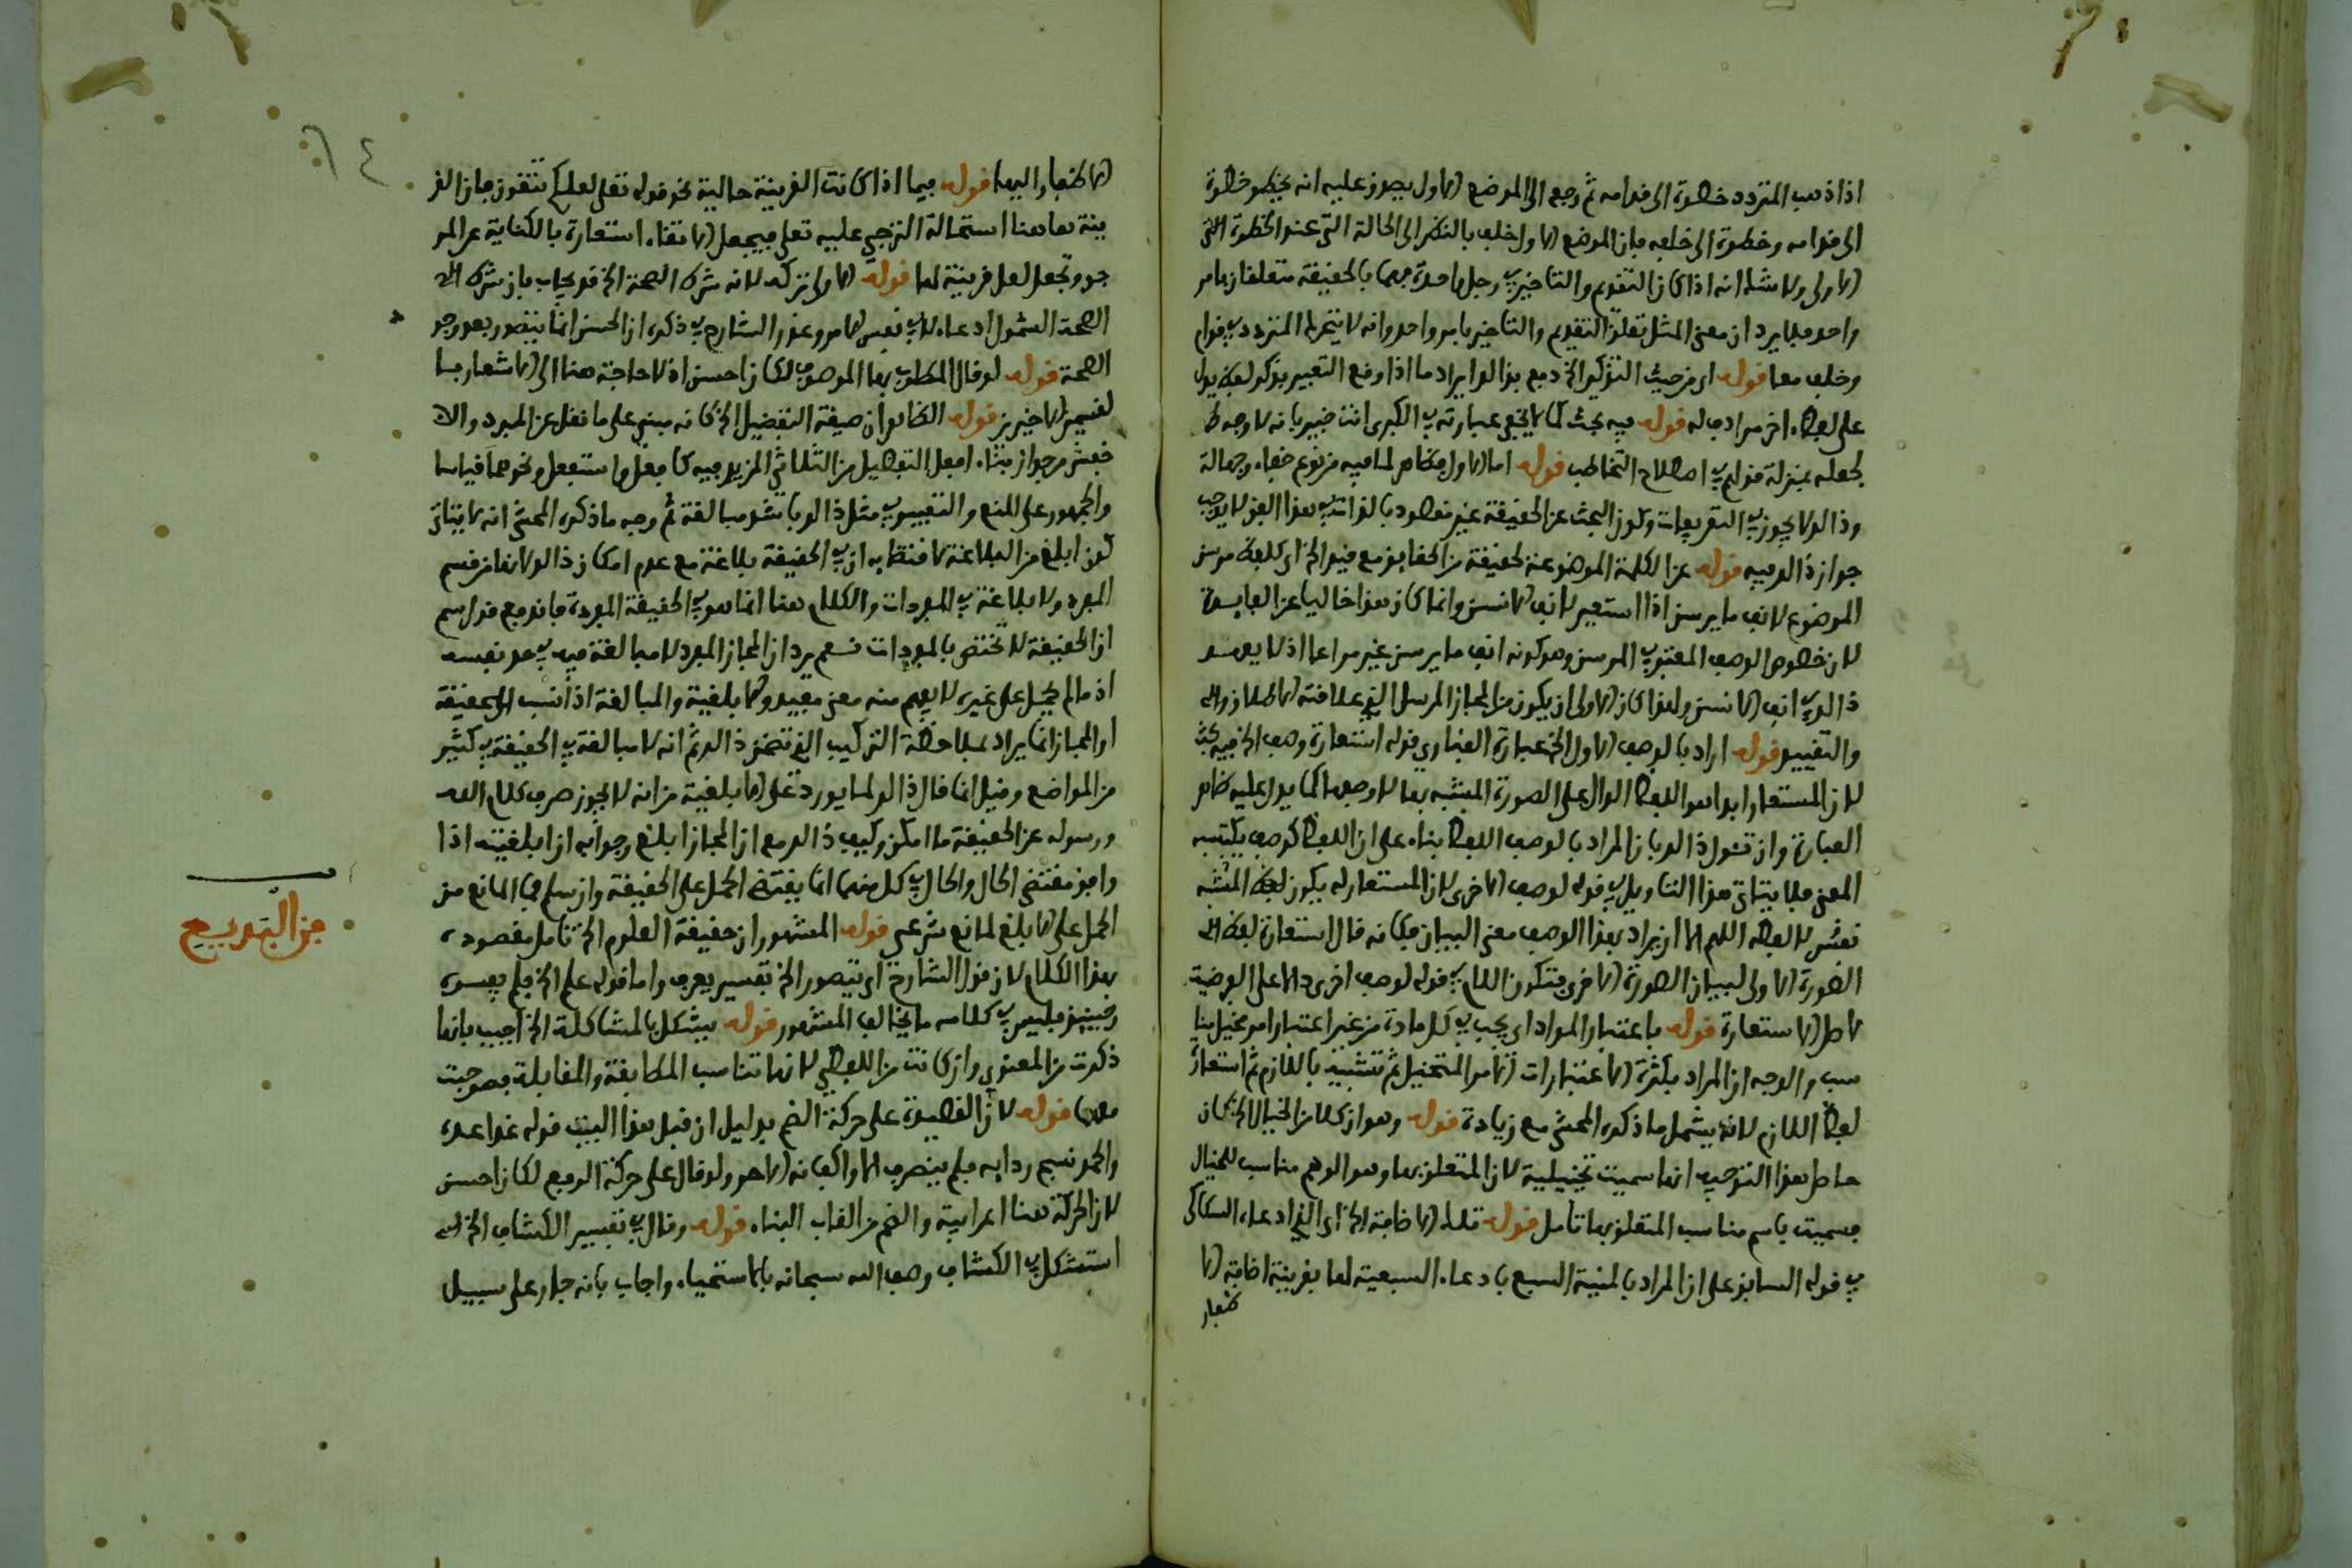 اذا ذهب المتردد خطوة الى قدامه ثم رجع الى الموضع الاول يصدق عليه انه يخطو خطوة
الى قدامه وخطوة الى خلفه فان الموضع الاول خلف بالنظر الى الحالة التي عند الخطوة
الاولى ولا شك انه اذا كان التقديم والتاخير في رجل واحدة فهما بالحقيقة متعلقان بامر
واحد فلا يرد ان معنى المثل تعلق التقديم والتاخير بامر واحد وانه لا يتحرك المتردد في قدام
وخلف معا قوله اي من حيث التذكير الخ دفع بذالك ايراد ما اذا وقع التعبير بذكر لفظ يدل
على لفظ اخر مرادف له قوله فيه بحث كما لا يخفى عبارته في الكبرى انت خبير بانه لا وجه
لجعله بمنزلة قولهم في اصطلاح التخاطب قوله اما الاول فظاهر لما فيه من نوع خفاء وجهالة
وذالك لا يجوز في التعريفات وكون البحث عن الحقيقة غير مقصود بالذات في هذا الفن لا يوجب
جواز ذالك فيه قوله عن الكلمة الموضوعة لحقيقة من الحقايق مع قيد الخ اي كلفظ مرسن
الموضوع لانف ما يرسن اذا استعير لانف الانسان وانما كان هذا خاليا عن الفايدة
لان خصوص الوصف المعتبر في المرسن وهو كونه انف ما يرسن غير مراعا اذ لا يقصد
ذالك في انف الانسان ولهذا كان الاولى ان يكون من المجاز المرسل الذي علاقته الاطلاق
والتقييد قوله اراد بالوصف الاول الخ عبارة الفناري قوله استعارة وصف الخ فيه بحث
لان المستعار ابدا هو اللفظ الدال على الصورة المشبه بها لا وصفها كما يدل عليه ظاهر
العبارة وان تؤول ذالك بان المراد بالوصف اللفظ بناء على ان اللفظ كوصف يكتسبه
المعنى فلا يتاتى هذا التاويل في قوله لوصف الاخرى لان المستعار له يكون لفظ المشبه
نفس لا لفظه اللهم الا ان يراد بهذا الوصف معنى البيان فكانه قال استعارة لفظ
الصورة الاولى لبيان الصورة الاخرى فتكون اللام في قوله لوصف اخرى دالا على الغرضية
لا صل الاستعارة قوله باعتبار المواد اي يجب في كل مادة من غير اعتبار امر مخيل منا
سب والوجه ان المراد بكثرة الاعتبارات الامر المتخيل ثم تشبيه باللازم ثم استعارة
لفظ اللازم لانه يشمل ما ذكره المحشي مع زيادة قوله وهو ان كلا من الخيال الخ كان
حاصل هذا التوجيه انها سميت تخييلية لان المتعلق بها وهو الوهم مناسب للخيال
فسميت باسم مناسب المتعلق بها تامل قوله تلك الاضافة الخ اي الذي ادعاه السكاكي
في قوله السابق على ان المراد بالمنية السبع بادعاء السبعية لها بقرينة اضافة الا
ظفار
٦٤
الاظفار اليها قوله فيما اذا كانت القرينة حالية نحو قوله تعلى لعلكم تتقون فان القر
ينة هاهنا استحالة الترجي عليه تعلى فيجعل الاتقاء استعارة بالكناية عن المر
جو وتجعل لعل قرينة لها قوله الاولى تركه لانه شرك الصحة الخ قد يجاب بان شرك
الصحة الشمول ادعاء لا في نفس الامر وعذر الشارح في ذكره ان الحسن انما يتصور بعد وجود
الصحة قوله لو قال المطلوب بها الموصوف لكان احسن اذ لا حاجة هنا الى الاشعار بها
لقسيمى الاخيرين قوله الظاهر ان صيغة التفضيل الخ كانه مبني على ما نقل عن المبرد والا
خفش من جواز بناء افعل التفضيل من الثلاثي المزيد فيه كافعل واستفعل ونحوهما قياسا
والجمهور على المنع والتقييد في مثل ذالك باشد مبالغة ثم وجه ما ذكره المحشي انه لا يتاتى
كون ابلغ من البلاغة لاقتضايه ان في الحقيقة بلاغة مع عدم امكان ذالك لانها من قسم
المفرد ولا بلاغة في المفردات والكلام هنا انما هو في الحقيقة المفردة فاندفع قول
ان الحقيقة لا تختص بالمفردات نعم يرد ان المجاز المفرد لا مبالغة فيه في حد نفسه
اذ ما لم يحمل على غيره لا يفهم منه معنى مفيد والابلغية والمبالغة اذا نسب الى الحقيقة
او المجاز انما يراد بملاحظة التركيب الذي تضمن ذالك ثم انه لا مبالغة في الحقيقة في كثير
من المواضع وقيل انما قال ذالك لما يورد على الابلغية من انه لا يجوز صرف كلام الله
ورسوله عن الحقيقة ما امكن وكيف ذالك مع ان المجاز ابلغ وجوابه ان ابلغيته اذا
وافق مقتضى الحال والحال في كل منهما انما يقتضي الحمل على الحقيقة وان سلم فما المانع من
الحمل على الابلغ لمانع شرعي قوله المشهور ان حقيقة العلوم الخ تامل مقصوده
بهذا الكلام لان قول الشارح اي يتصور الخ تفسير يعرف واما قوله علم الخ فلم يفسره
وحينيذ فليس في كلامه ما يخالف المشهور قوله يشكل بالمشاكلة الخ اجيب بانها
ذكرت من المعنوي وان كانت من اللفظي لانها تناسب المطابقة والمقابلة فصوحبت
معهما قوله لان القصيدة على حركة الضم بدليل ان قبل هذا البيت قوله غدا غدوة
والحمد نسج ردايه فلم ينصرف الا واكفانه الاجر ولو قال على حركة الرفع لكان احسن
لان الحركة هنا اعرابية والضم من القاب البناء قوله وقال في تفسير الكشاف الخ
استشكل في الكشاف وصف الله سبحانه بالاستحياء واجاب بانه جار على سبيل
فن البديع